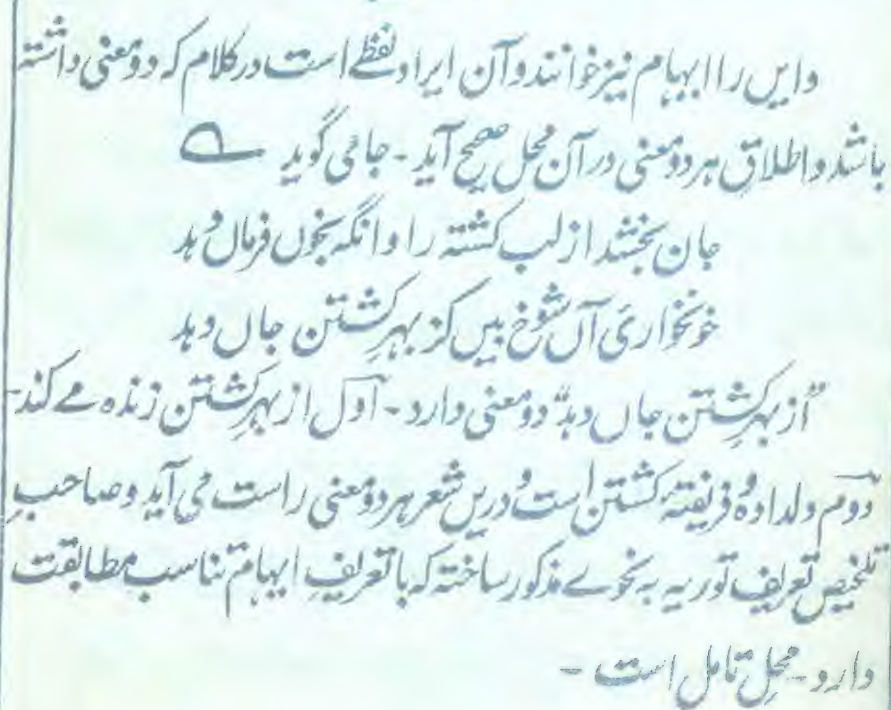 وایں را ایہام نیز خوانند و آن ایراد لفظے است در کلام کہ دو معنی داشتہ
باشد و اطلاقِ ہر دو معنی در آن محل صحیح آید - جامی گوید ؎
جان بخشد از لب کشتہ را وانگہ بخوں فرماں دہد
خونخواریٔ آں شوخ بیں کز بہرِ کشتن جاں دہد
"از بہرِ کشتن جاں دہد" دو معنی دارد - اول از بہرِ کشتن زندہ مے کند -
دوم دلدادہ و فریفتۂ کشتن است و دریں شعر ہر دو معنی راست می آید و صاحبِ
تلخیص تعریفِ توریہ بہ نحوے مذکور ساختہ کہ با تعریفِ ایہام تناسب مطابقت
دارد - محلِ تامل است -